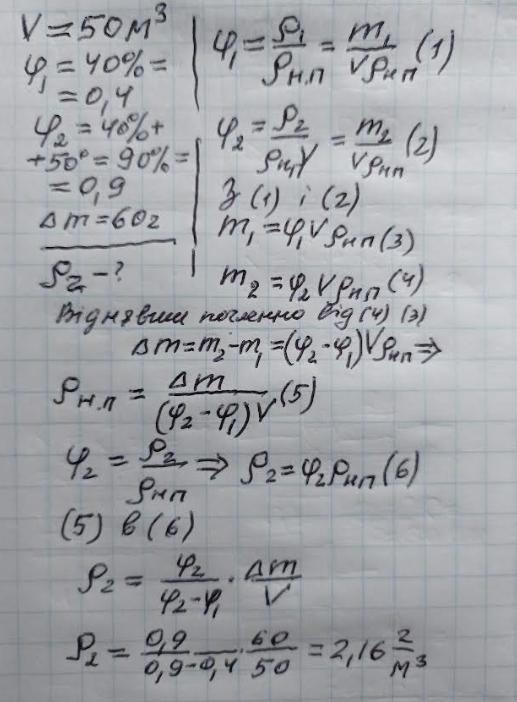 V = 50 м³
φ₁ = 40% =
= 0,4
φ₂ = 40% +
+50° = 90% =
= 0,9
Δm = 60г
ρ₂ - ?
φ₁ = ρ₁/ρн.п = m₁/Vρнп (1)
φ₂ = ρ₂/ρн.п = m₂/Vρнп (2)
З (1) і (2)
m₁ = φ₁Vρнп (3)
m₂ = φ₂Vρнп (4)
Віднявши почленно від (4) (3)
Δm = m₂ - m₁ = (φ₂ - φ₁)Vρнп ⇒
ρн.п = Δm/(φ₂ - φ₁)V (5)
φ₂ = ρ₂/ρнп ⇒ ρ₂ = φ₂ρнп (6)
(5) в (6)
ρ₂ = φ₂/(φ₂ - φ₁) · Δm/V
ρ₂ = 0,9/(0,9 - 0,4) · 60/50 = 2,16 г/м³